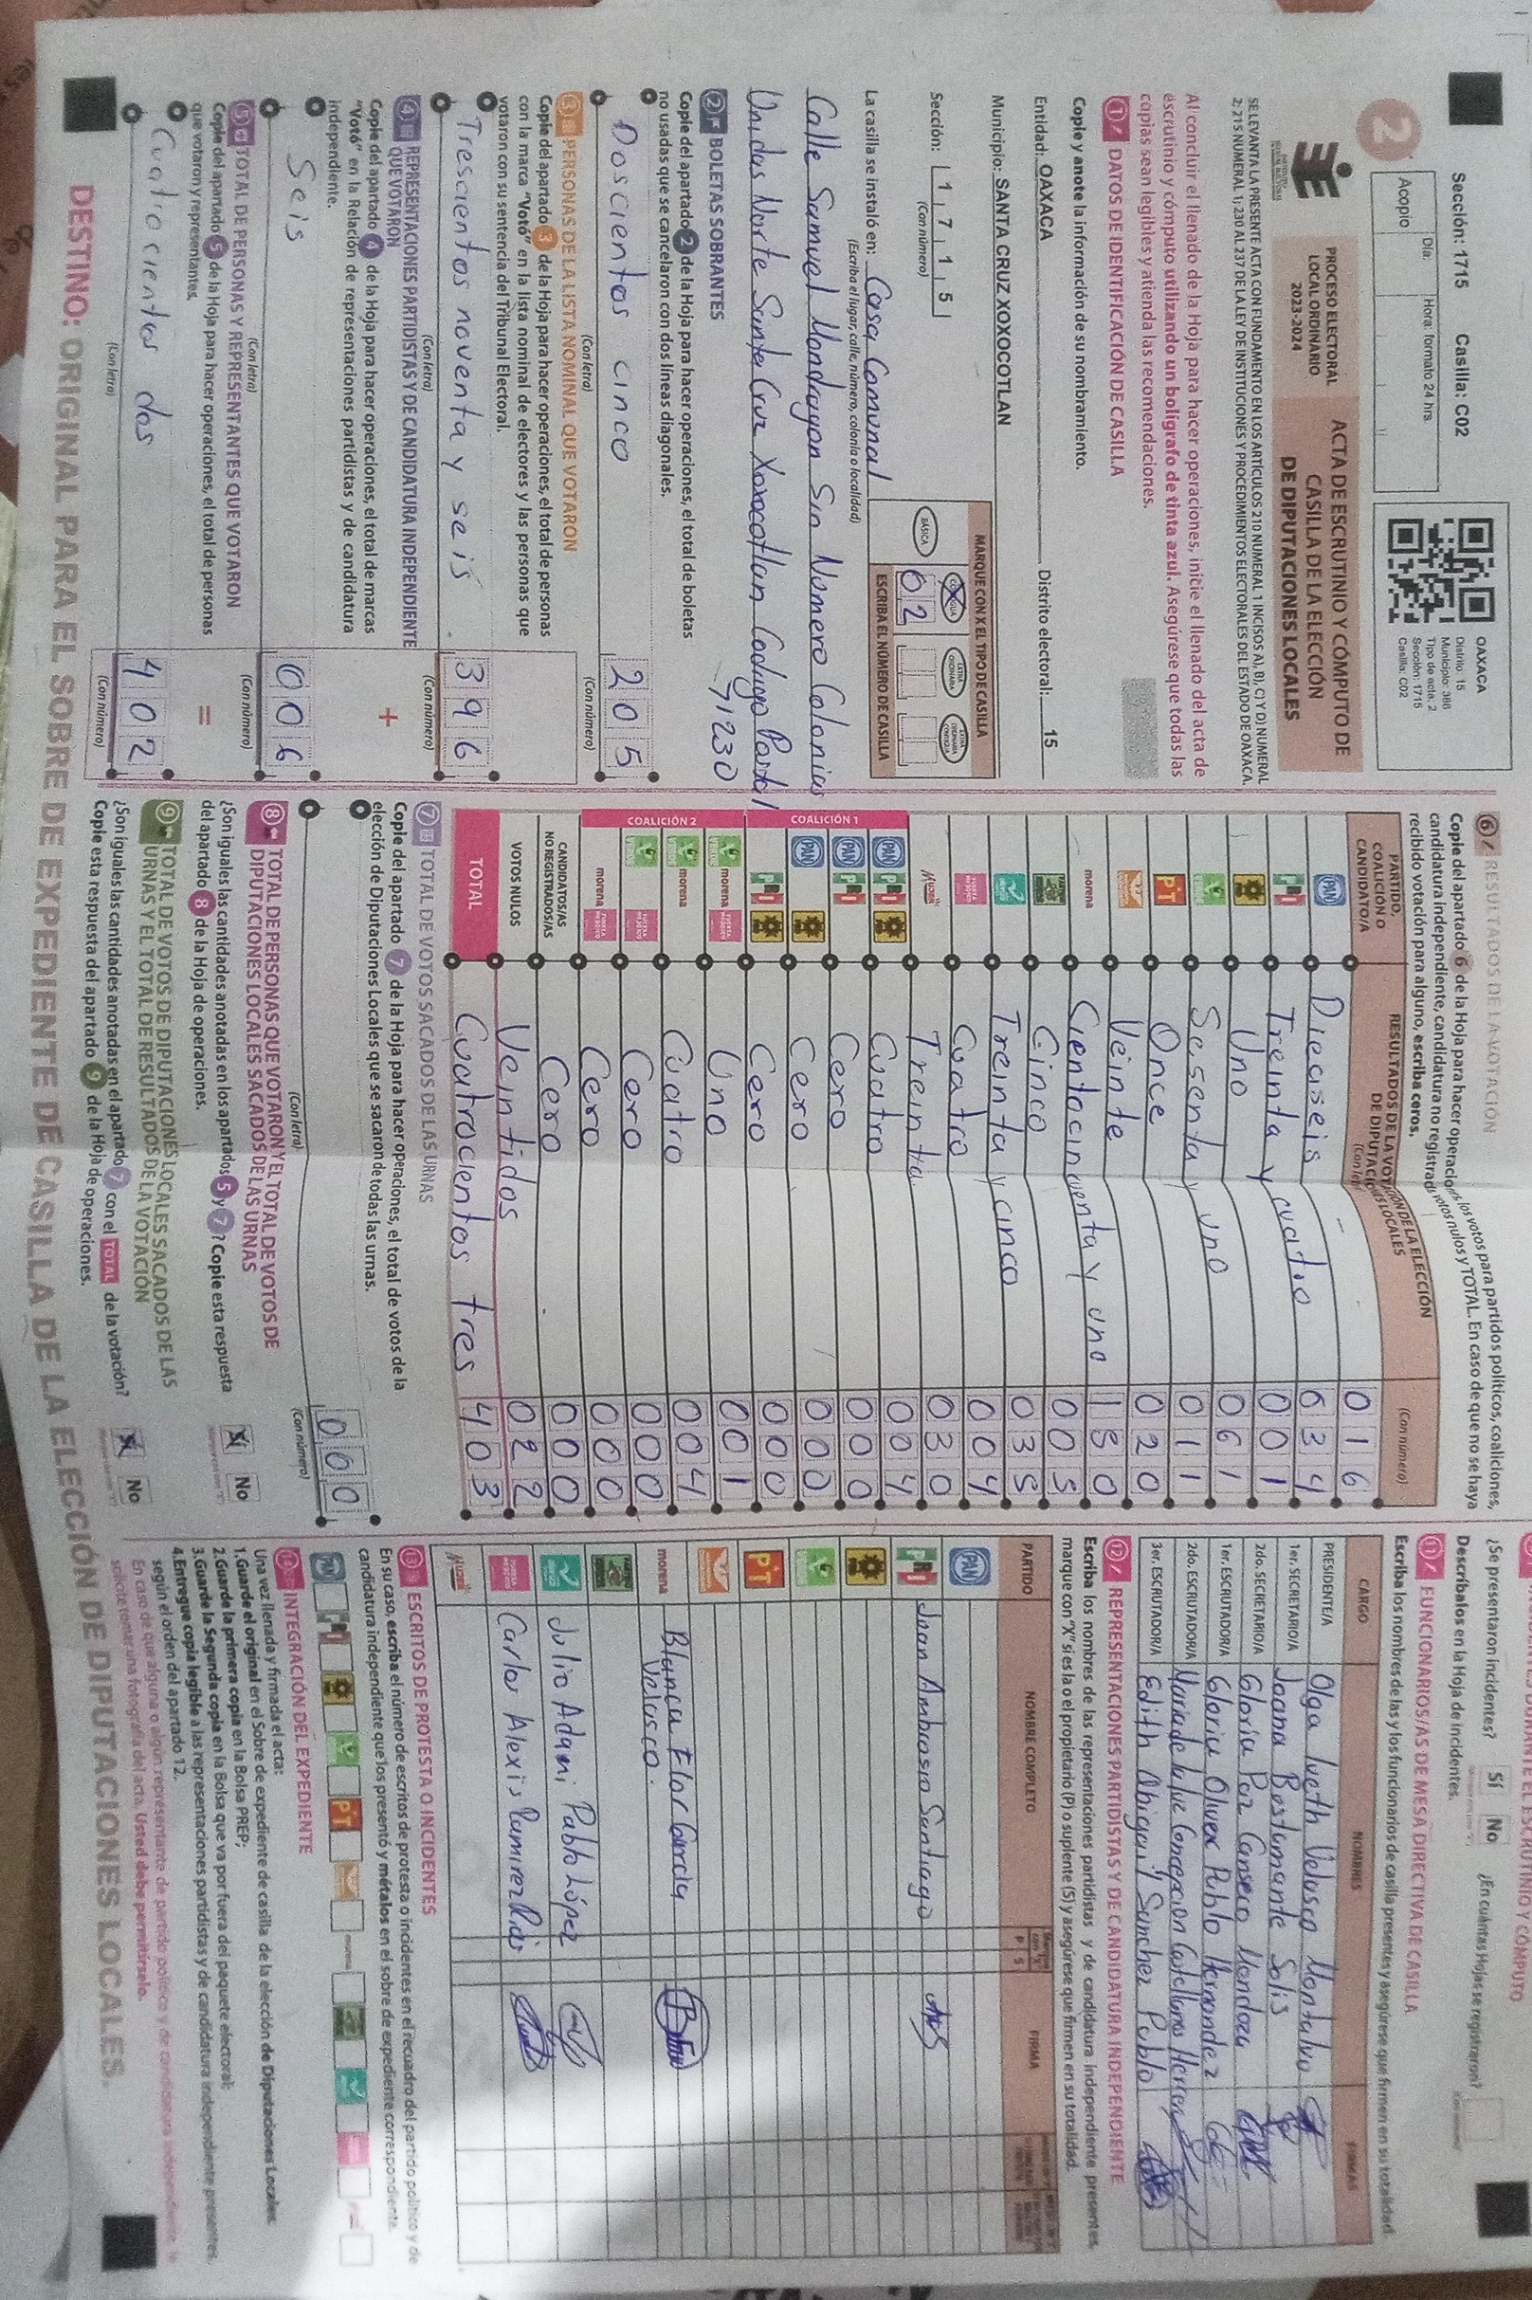 Sección: 1715 Casilla: C02
2
Acopio
Día:
Hora: formato 24 hrs.
OAXACA
Distrito: 15
Municipio: 388
Tipo de acta: 2
Sección: 1715
Casilla: C02
PROCESO ELECTORAL
LOCAL ORDINARIO
2023-2024
ACTA DE ESCRUTINIO Y CÓMPUTO DE
CASILLA DE LA ELECCIÓN
DE DIPUTACIONES LOCALES
SE LEVANTA LA PRESENTE ACTA CON FUNDAMENTO EN LOS ARTÍCULOS 210 NUMERAL 1 INCISOS A), B), C) Y D) NUMERAL
2; 215 NUMERAL 1; 230 AL 237 DE LA LEY DE INSTITUCIONES Y PROCEDIMIENTOS ELECTORALES DEL ESTADO DE OAXACA.
Al concluir el llenado de la Hoja para hacer operaciones, inicie el llenado del acta de
escrutinio y cómputo utilizando un bolígrafo de tinta azul. Asegúrese que todas las
copias sean legibles y atienda las recomendaciones.
1 DATOS DE IDENTIFICACIÓN DE CASILLA
Copie y anote la información de su nombramiento.
Entidad: OAXACA Distrito electoral: 15
Municipio: SANTA CRUZ XOXOCOTLAN
Sección: 1 7 1 5
(Con número)
MARQUE CON X EL TIPO DE CASILLA
BÁSICA
02
ESCRIBA EL NÚMERO DE CASILLA
La casilla se instaló en: Casa Comunal
(Escriba el lugar, calle, número, colonia o localidad)
Calle Samuel Mondragon Sin Numero Colonias
Unidas Norte Santa Cruz Xoxocotlan Codigo Postal
71230
2 BOLETAS SOBRANTES
Copie del apartado 2 de la Hoja para hacer operaciones, el total de boletas
no usadas que se cancelaron con dos líneas diagonales.
Doscientos cinco 205
(Con letra) (Con número)
3 PERSONAS DE LA LISTA NOMINAL QUE VOTARON
Copie del apartado 3 de la Hoja para hacer operaciones, el total de personas
con la marca "Votó" en la lista nominal de electores y las personas que
votaron con su sentencia del Tribunal Electoral.
Trescientos noventa y seis 396
(Con letra) (Con número)
4 REPRESENTACIONES PARTIDISTAS Y DE CANDIDATURA INDEPENDIENTE
QUE VOTARON
+
Copie del apartado 4 de la Hoja para hacer operaciones, el total de marcas
"Votó" en la Relación de representaciones partidistas y de candidatura
independiente.
Seis 006
(Con letra) (Con número)
5 TOTAL DE PERSONAS Y REPRESENTANTES QUE VOTARON
=
Copie del apartado 5 de la Hoja para hacer operaciones, el total de personas
que votaron y representantes.
Cuatrocientos dos 402
(Con letra) (Con número)
6 RESULTADOS DE LA VOTACIÓN
Copie del apartado 6 de la Hoja para hacer operaciones los votos para partidos políticos, coaliciones,
candidatura independiente, candidatura no registrada, votos nulos y TOTAL. En caso de que no se haya
recibido votación para alguno, escriba ceros.
PARTIDO,
COALICIÓN O
CANDIDATO/A
RESULTADOS DE LA VOTACIÓN DE LA ELECCIÓN
DE DIPUTACIONES LOCALES
(Con letra)
(Con número)
PAN Dieciseis 016
PRI Treinta y cuatro 034
Uno 001
Sesenta y uno 061
PT Once 011
Veinte 020
morena Cientocincuenta y uno 150
Cinco 005
Treinta y cinco 035
Cuatro 004
Mujer Treinta 030
COALICIÓN 1
PAN PRI Cuatro 004
PAN PRI Cero 000
PAN Cero 000
PRI Cero 000
COALICIÓN 2
morena Uno 001
morena Cuatro 004
Cero 000
morena Cero 000
CANDIDATOS/AS
NO REGISTRADOS/AS Cero 000
VOTOS NULOS Veintidos 022
TOTAL Cuatrocientos tres 403
7 TOTAL DE VOTOS SACADOS DE LAS URNAS
Copie del apartado 7 de la Hoja para hacer operaciones, el total de votos de la
elección de Diputaciones Locales que se sacaron de todas las urnas.
000
(Con letra) (Con número)
8 TOTAL DE PERSONAS QUE VOTARON Y EL TOTAL DE VOTOS DE
DIPUTACIONES LOCALES SACADOS DE LAS URNAS
¿Son iguales las cantidades anotadas en los apartados 5 y 7? Copie esta respuesta
del apartado 8 de la Hoja de operaciones.
Sí No
9 TOTAL DE VOTOS DE DIPUTACIONES LOCALES SACADOS DE LAS
URNAS Y EL TOTAL DE RESULTADOS DE LA VOTACIÓN
¿Son iguales las cantidades anotadas en el apartado 7 con el TOTAL de la votación?
Copie esta respuesta del apartado 9 de la Hoja de operaciones.
Sí No
¿Se presentaron incidentes? Sí No ¿En cuántas Hojas se registraron?
Descríbalos en la Hoja de incidentes.
11 FUNCIONARIOS/AS DE MESA DIRECTIVA DE CASILLA
Escriba los nombres de las y los funcionarios de casilla presentes y asegúrese que firmen en su totalidad.
CARGO NOMBRES FIRMAS
PRESIDENTE/A Olga Iveth Velasco Montalvo
1er. SECRETARIO/A Joana Bustamante Solis
2do. SECRETARIO/A Gloria Paz Canseco Mendoza
1er. ESCRUTADOR/A Gloria Oliver Pablo Hernandez
2do. ESCRUTADOR/A Maria de la luz Concepcion Castellanos
3er. ESCRUTADOR/A Edith Abigail Sanchez Pablo
12 REPRESENTACIONES PARTIDISTAS Y DE CANDIDATURA INDEPENDIENTE
Escriba los nombres de las representaciones partidistas y de candidatura independiente presentes,
marque con "X" si es la o el propietario (P) o suplente (S) y asegúrese que firmen en su totalidad.
PARTIDO NOMBRE COMPLETO P S FIRMA
PAN
PRI Juan Ambrosio Santiago
PT
morena Blanca Flor Garcia
Velasco.
Julio Adami Pablo López
Carlos Alexis Ramirez Rios
Mujer
13 ESCRITOS DE PROTESTA O INCIDENTES
En su caso, escriba el número de escritos de protesta o incidentes en el recuadro del partido político y de
candidatura independiente que los presentó y métalos en el sobre de expediente correspondiente.
PAN PRI PT morena
14 INTEGRACIÓN DEL EXPEDIENTE
Una vez llenada y firmada el acta:
1. Guarde el original en el Sobre de expediente de casilla de la elección de Diputaciones Locales.
2. Guarde la primera copia en la Bolsa PREP;
3. Guarde la Segunda copia en la Bolsa que va por fuera del paquete electoral;
4. Entregue copia legible a las representaciones partidistas y de candidatura independiente presentes,
según el orden del apartado 12.
En caso de que alguna o algún representante de partido político y de candidatura independiente le
solicite tomar una fotografía del acta. Usted debe permitírselo.
DESTINO: ORIGINAL PARA EL SOBRE DE EXPEDIENTE DE CASILLA DE LA ELECCIÓN DE DIPUTACIONES LOCALES.